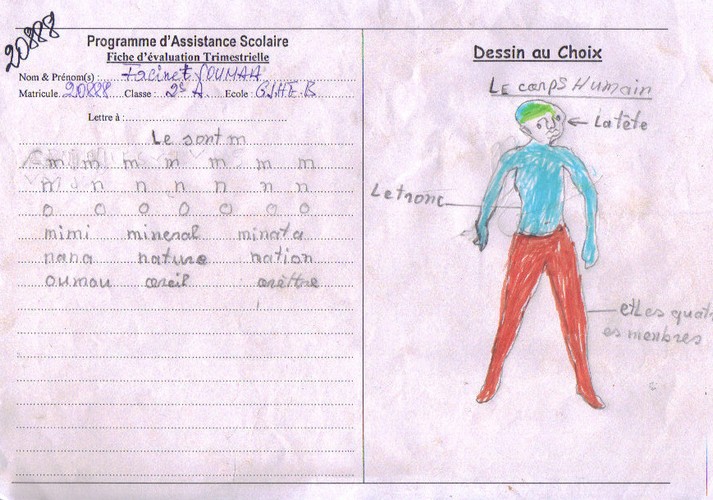 20888
Programme d'Assistance Scolaire
Fiche d'évaluation Trimestrielle
Nom & Prénom(s) : Facinet SOUMAH
Matricule 20888 Classe : 2è A Ecole : G.SHF.B
Lettre à :
Le sont m
m m m m m m m
m n n n n n n
o o o o o o o
mimi mineral minata
nana nature nation
oumou oreil
Dessin au Choix
LE corps Humain
La tête
Le tronc
et Les quatr
es menbres